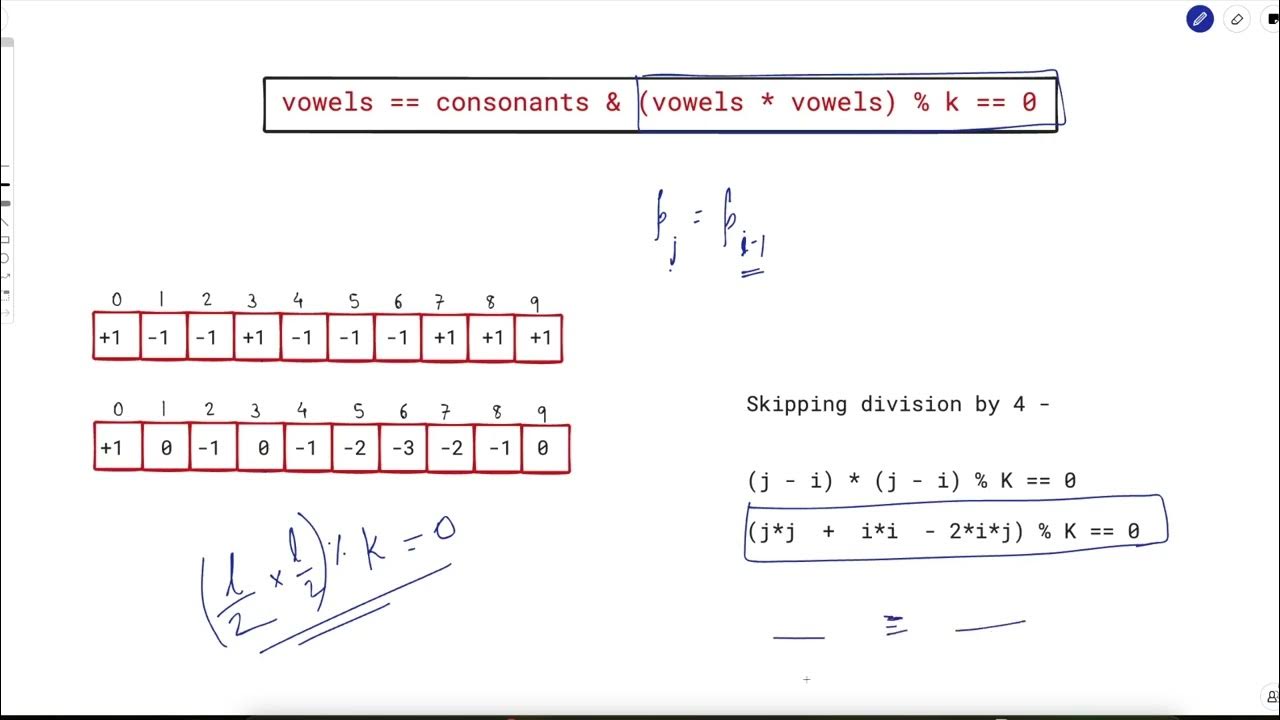 vowels == consonants & (vowels * vowels) % k == 0
p_j = p_i-1
0 1 2 3 4 5 6 7 8 9
+1 -1 -1 +1 -1 -1 -1 +1 +1 +1
0 1 2 3 4 5 6 7 8 9
+1 0 -1 0 -1 -2 -3 -2 -1 0
Skipping division by 4 -
(j - i) * (j - i) % K == 0
(j*j + i*i - 2*i*j) % K == 0
(l/2 × l/2) % k = 0
≡